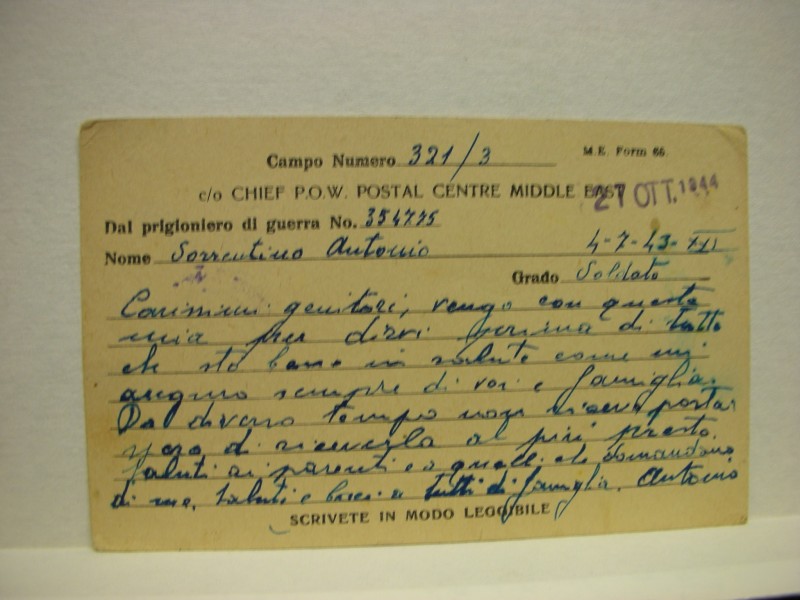 Campo Numero 321/3
M.E. Form 66.
c/o CHIEF P.O.W. POSTAL CENTRE MIDDLE EAST
27 OTT. 1944
Dal prigioniero di guerra No. 354775
4-7-43- XXI
Nome Sorrentino Antonio
Grado Soldato
Carissimi genitori, vengo con questa
mia per dirvi prima di tutto
che sto bene in salute come mi
auguro sempre di voi e famiglia.
Da diverso tempo non ricevo posta
spero di riceverla al più presto.
Saluti ai parenti e a quelli che domandono
di me, saluti e baci a tutti di famiglia. Antonio
SCRIVETE IN MODO LEGGIBILE